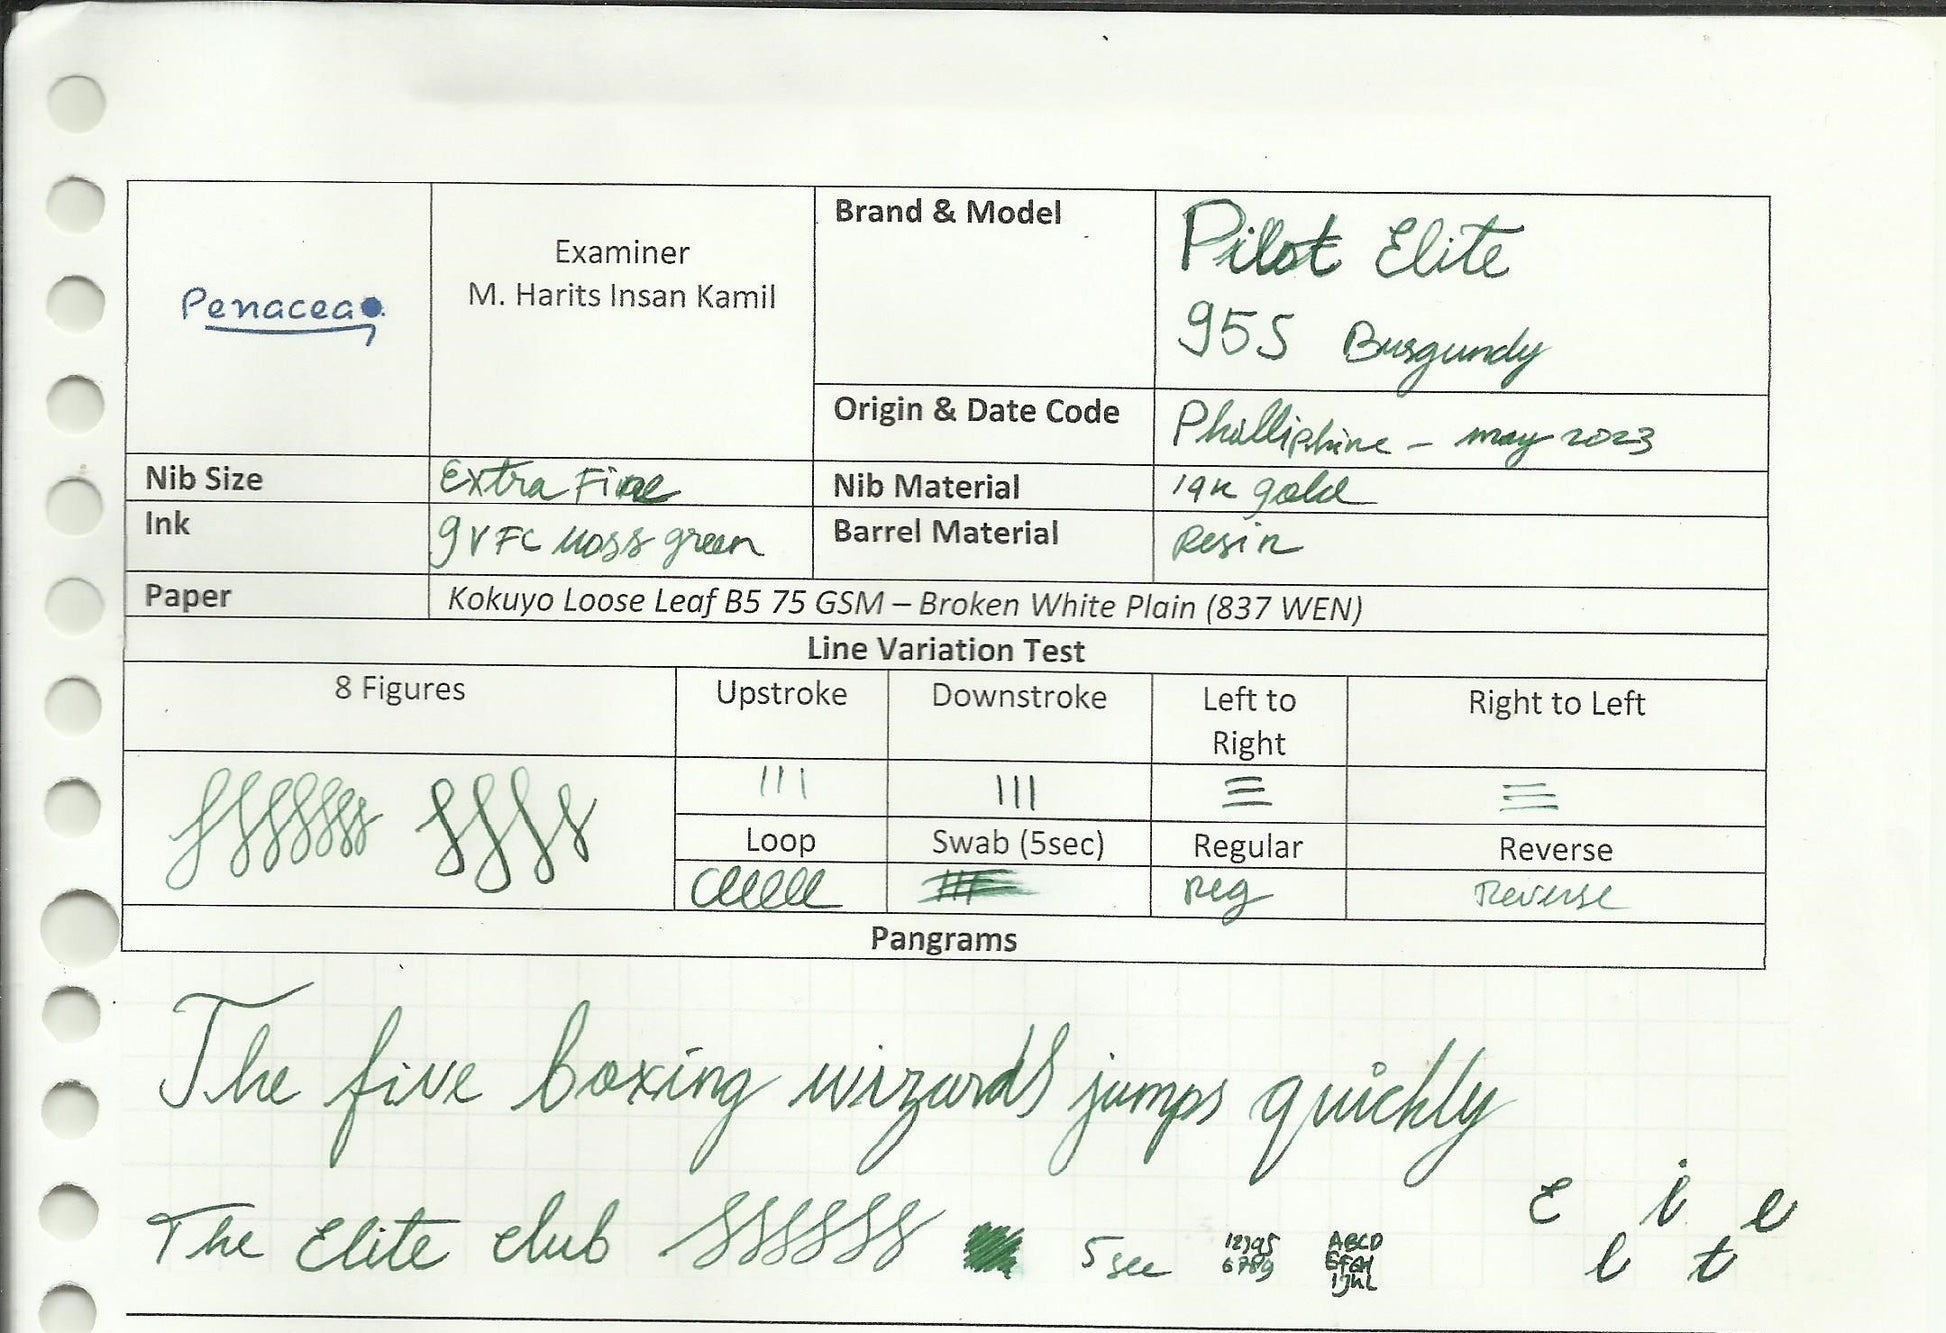 Penacea
Examiner
M. Harits Insan Kamil
Brand & Model
Pilot Elite
95S Burgundy
Origin & Date Code
Philliphine - may 2023
Nib Size
Extra Fine
Nib Material
14K gold
Ink
GVFC Moss green
Barrel Material
Resin
Paper
Kokuyo Loose Leaf B5 75 GSM – Broken White Plain (837 WEN)
Line Variation Test
8 Figures
Upstroke
Downstroke
Left to
Right
Right to Left
Loop
Swab (5sec)
Regular
Reverse
Reg
Reverse
Pangrams
The five boxing wizards jumps quickly
The Elite club
5 sec
12345
6789
ABCD
EFGH
IJKL
E l i t e